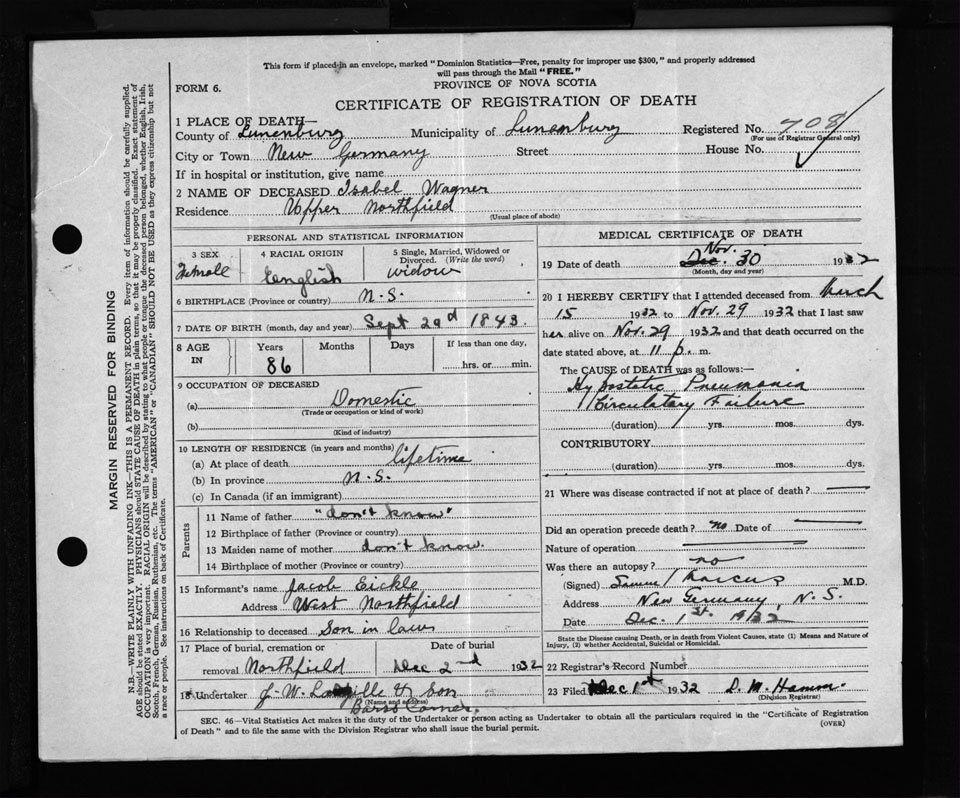 This form if placed in an envelope, marked "Dominion Statistics—Free, penalty for improper use $300," and properly addressed
will pass through the Mail "FREE."
FORM 6.
PROVINCE OF NOVA SCOTIA
CERTIFICATE OF REGISTRATION OF DEATH
1 PLACE OF DEATH—
County of Lunenburg Municipality of Lunenburg Registered No. 708
(For use of Registrar General only)
City or Town New Germany Street House No.
If in hospital or institution, give name
2 NAME OF DECEASED Isabel Wagner
Residence Upper Northfield
(Usual place of abode)
PERSONAL AND STATISTICAL INFORMATION
3 SEX 4 RACIAL ORIGIN 5 Single, Married, Widowed or
Divorced. (Write the word)
Female English widow
6 BIRTHPLACE (Province or country) N.S.
7 DATE OF BIRTH (month, day and year) Sept 29d 1843
8 AGE IN Years Months Days If less than one day,
86 hrs. or min.
9 OCCUPATION OF DECEASED
(a) Domestic
(Trade or occupation or kind of work)
(b)
(Kind of industry)
10 LENGTH OF RESIDENCE (in years and months)
(a) At place of death lifetime
(b) In province N.S.
(c) In Canada (if an immigrant)
Parents
11 Name of father "don't know"
12 Birthplace of father (Province or country)
13 Maiden name of mother don't know
14 Birthplace of mother (Province or country)
15 Informant's name Jacob Eickle
Address West Northfield
16 Relationship to deceased Son in law
17 Place of burial, cremation or Date of burial
removal Northfield Dec 2nd 1932
18 Undertaker J. W. Langille & Son
(Name and address)
Barss Corner.
MEDICAL CERTIFICATE OF DEATH
Nov.
19 Date of death Dec. 30 1932
(Month, day and year)
20 I HEREBY CERTIFY that I attended deceased from March
15 1932 to Nov. 29 1932 that I last saw
her alive on Nov. 29 1932 and that death occurred on the
date stated above, at 11 p. m.
The CAUSE of DEATH was as follows:—
Hypostatic Pneumonia
Circulatory Failure
(duration) yrs. mos. dys.
CONTRIBUTORY
(duration) yrs. mos. dys.
21 Where was disease contracted if not at place of death? —
Did an operation precede death? no Date of —
Nature of operation
Was there an autopsy? no
(Signed) Samuel Marcus M.D.
Address New Germany, N.S.
Date Dec. 1st. 1932
State the Disease causing Death, or in death from Violent Causes, state (1) Means and Nature of
Injury, (2) whether Accidental, Suicidal or Homicidal.
22 Registrar's Record Number
23 Filed Dec 1st 1932 D. M. Hamm.
(Division Registrar)
SEC. 46—Vital Statistics Act makes it the duty of the Undertaker or person acting as Undertaker to obtain all the particulars required in the "Certificate of Registration
of Death" and to file the same with the Division Registrar who shall issue the burial permit.
(OVER)
MARGIN RESERVED FOR BINDING
N.B.—WRITE PLAINLY WITH UNFADING INK—THIS IS A PERMANENT RECORD. Every item of information should be carefully supplied.
AGE should be stated EXACTLY. PHYSICIANS should STATE CAUSE OF DEATH in plain terms, so that it may be properly classified. Exact statement of
OCCUPATION is very important. RACIAL ORIGIN will be described by stating to what people or tongue the deceased person belonged, whether English, Irish,
Scotch, French, German, Russian, Ruthenian, etc. The terms "AMERICAN" or "CANADIAN" SHOULD NOT BE USED as they express citizenship but not
a race or people. See instructions on back of Certificate.